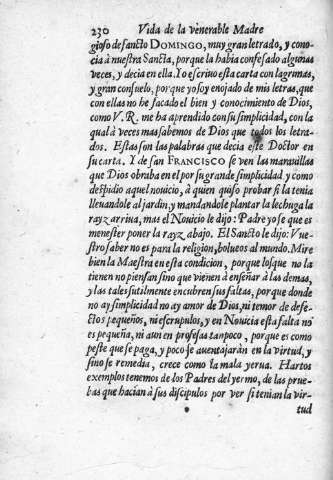 230 Vida de la venerable Madre
gioso de sancto DOMINGO, muy gran letrado, y cono-
cia à nuestra Sancta, porque la habia confesado algunas
veces, y decia en ella. Yo escrivo esta carta con lagrimas,
y gran consuelo, porque yo soy enojado de mis letras, que
con ellas no he sacado el bien y conocimiento de Dios,
como V. R. me ha aprendido con su simplicidad, con la
qual à veces mas sabemos de Dios que todos los letra-
dos. Estas son las palabras que decia este Doctor en
su carta. Y de san FRANCISCO se ven las maravillas
que Dios obraba en el por su grande simplicidad y como
despidio aquel nouicio, à quien quiso probar si la tenia
lleuandole al jardin, y mandandole plantar la lechuga la
rayz arriua, mas el Nouicio le dijo: Padre yo se que es
menester poner la rayz abajo. El Sancto le dijo: Vue-
stro saber no es para la religion, bolueos al mundo. Mire
bien la Maestra en esta condicion, porque los que no la
tienen no piensan sino que vienen à enseñar à las demas,
y las tales sutilmente encubren sus faltas, porque donde
no ay simplicidad no ay amor de Dios, ni temor de defe-
ctos pequeños, ni escrupulos, y en Nouicia esta falta no
es pequeña, ni aun en profesas tampoco, porque es como
peste que se paga, y poco se auentajaràn en la virtud, y
sino se remedia, crece como la mala yerua. Hartos
exemplos tenemos de los Padres del yermo, de las prue-
bas que hacian à sus discipulos por ver si tenian la vir-
tud